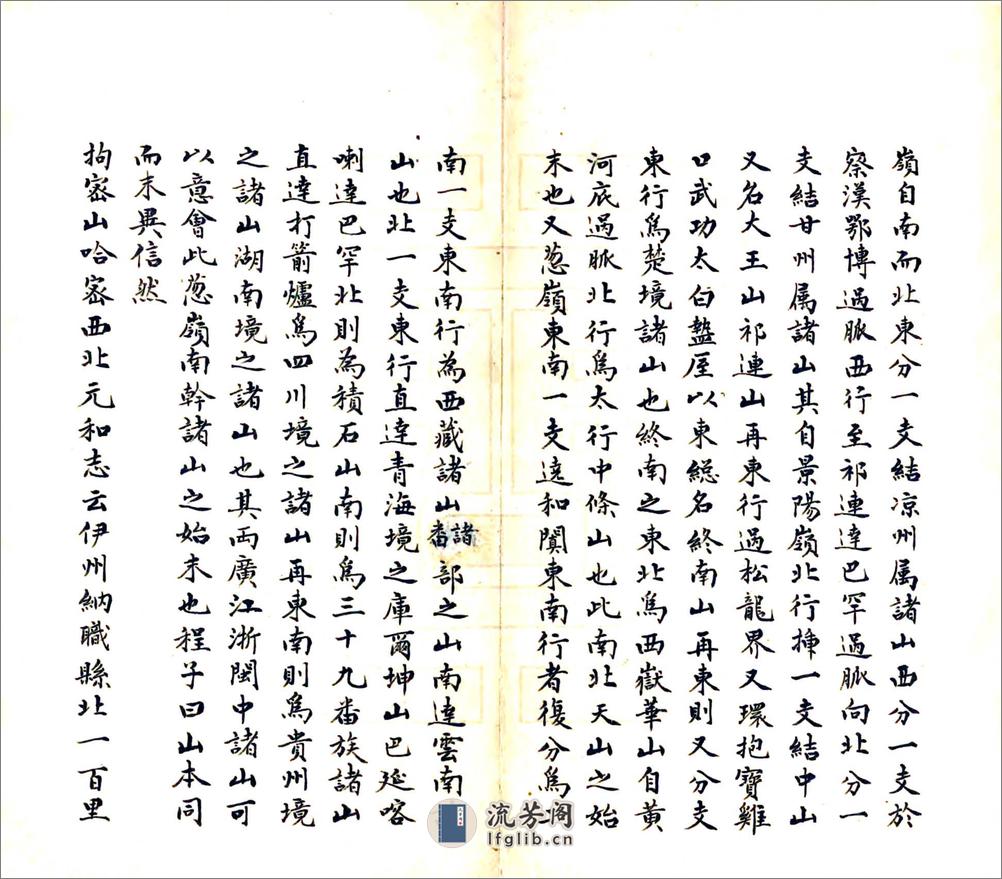 嶺自南而北東分一支結凉州属諸山西分一支於
察漢鄂博過脈西行至祁連達巴罕過脈向北分一
支結甘州属諸山其自景陽嶺北行㨂一支結中山
又名大王山祁連山再東行過松龍界又環抱寶雞
口武功太白盩厔以東総名終南山再東則又分支
東行爲楚境諸山也終南之東北爲西嶽華山自黃
河底過脈北行爲太行中條山也此南北天山之始
末也又葱嶺東南一支遶和闐東南行者復分爲
南一支東南行為西藏諸山諸番部之山南達雲南
山也北一支東行直達青海境之庫爾坤山巴延喀
喇達巴罕北則為積石山南則爲三十九番族諸山
直達打箭爐爲四川境之諸山再東南則爲貴州境
之諸山湖南境之諸山也其兩廣江浙閩中諸山可
以意會此葱嶺南幹諸山之始末也程子曰山本同
而末異信然
拘密山哈密西北元和志云伊州納職縣北一百里
流芳阁
lfglib.cn